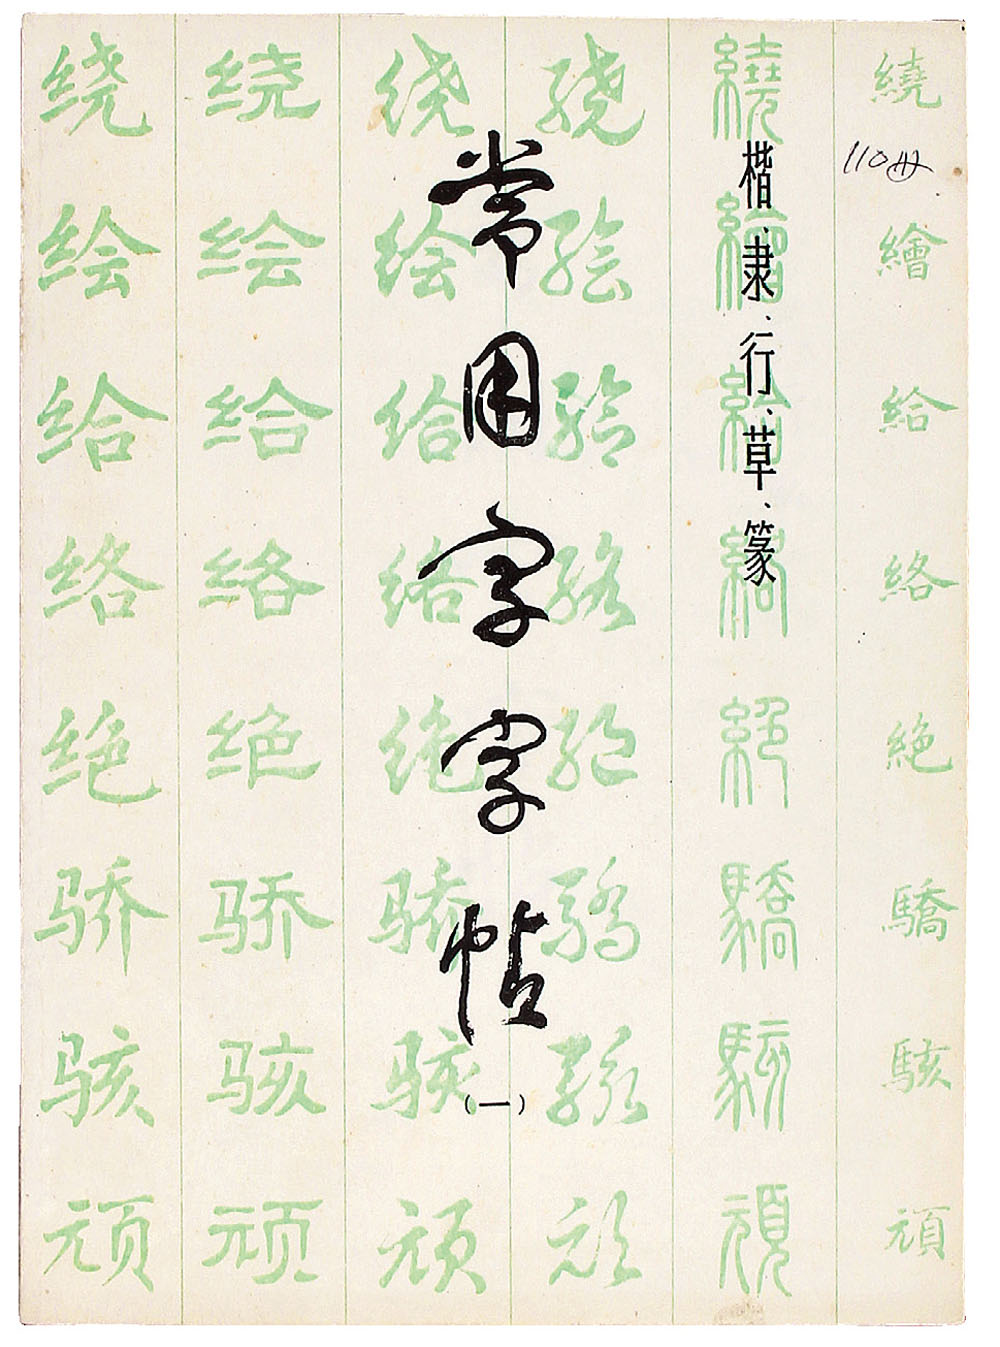 常用字字帖
(一)
楷、隶、行、草、篆
110
绕 绕 绕 绕 繞 繞
绘 绘 绘 绘 繪 繪
给 给 给 给 給 給
络 络 络 络 絡 絡
绝 绝 绝 绝 絕 絶
骄 骄 骄 骄 驕 驕
骇 骇 骇 骇 駭 駭
顽 顽 顽 顽 頑 頑